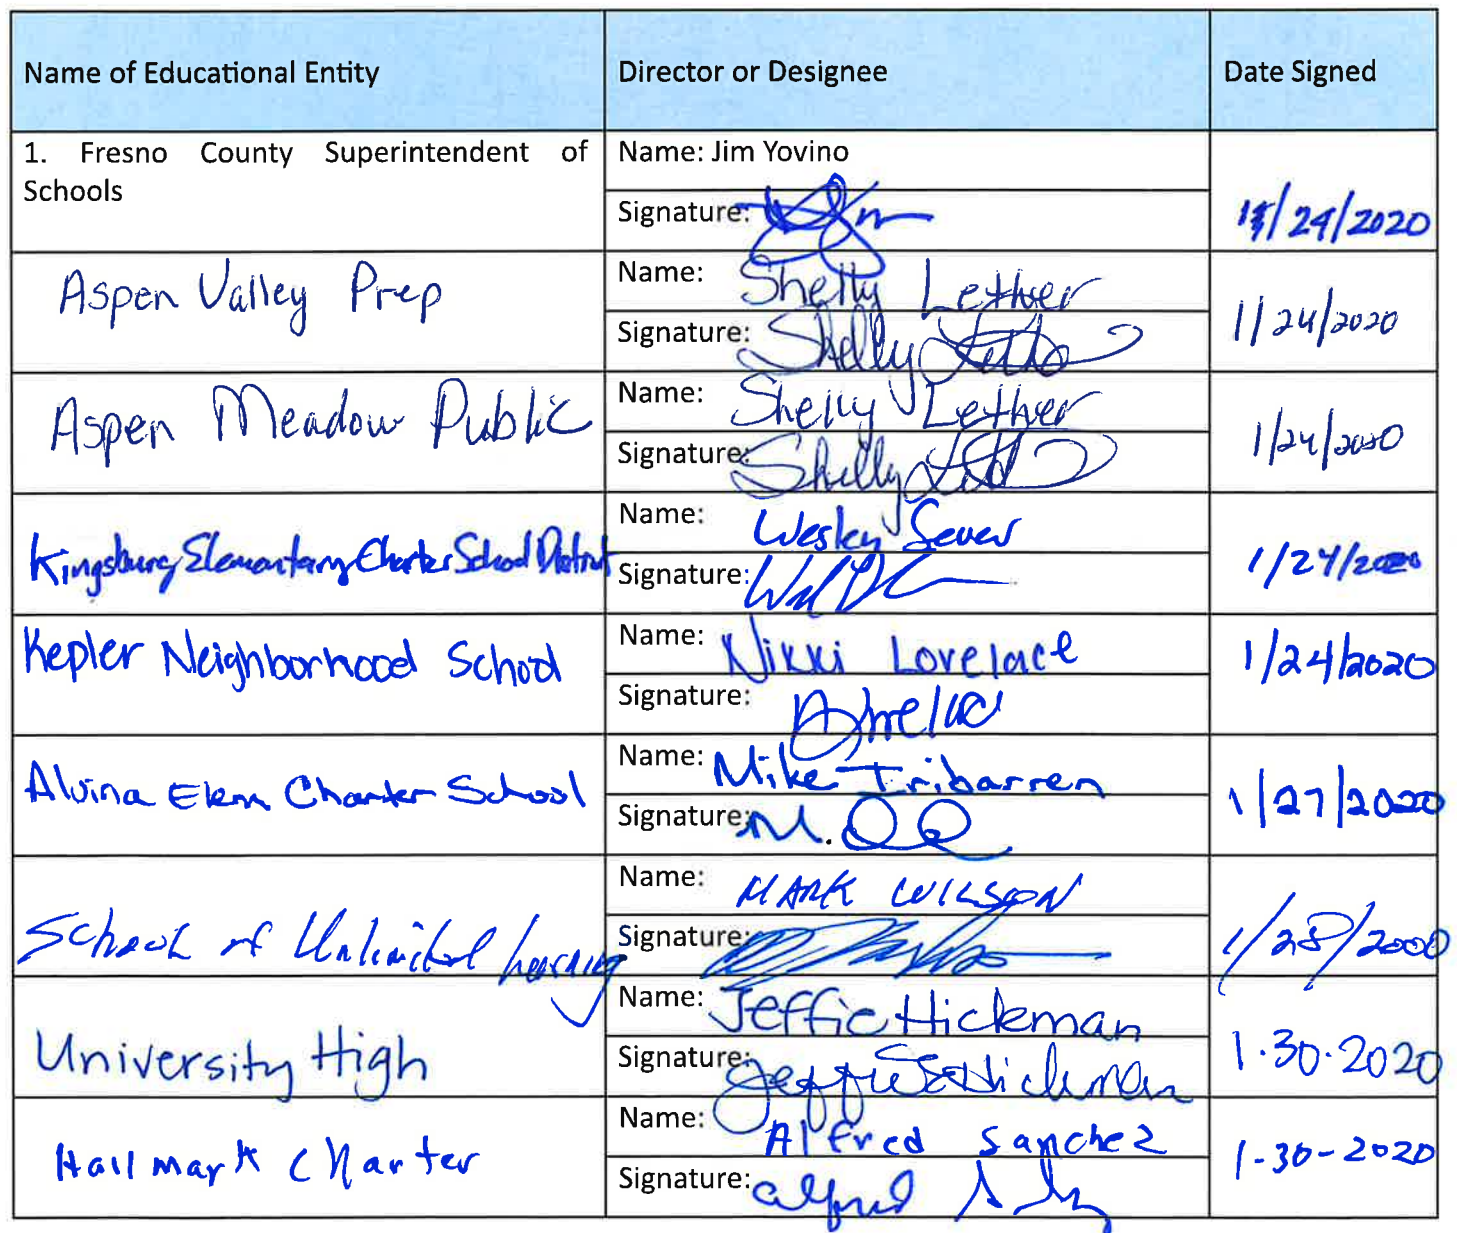 Name of Educational Entity
Director or Designee
Date Signed
1. Fresno County Superintendent of
Schools
Name: Jim Yovino
Signature:
/24/2020
Aspen Valley Prep
Name: Shelly Lether
Signature: Shelly Lether
1/24/2020
Aspen Meadow Public
Name: Shelly Lether
Signature: Shelly Lether
1/24/2020
Kingsburg Elementary Charter School District
Name: Wesley Sever
Signature:
1/24/2020
Kepler Neighborhood School
Name: Nikki Lovelace
Signature:
1/24/2020
Alvina Elem Charter School
Name: Mike Iribarren
Signature: M.
1/27/2020
School of Unlimited Learning
Name: MARK WILSON
Signature:
1/28/2020
University High
Name: Jeffie Hickman
Signature: Jeffie Hickman
1.30.2020
Hallmark Charter
Name: Alfred Sanchez
Signature: Alfred
1-30-2020